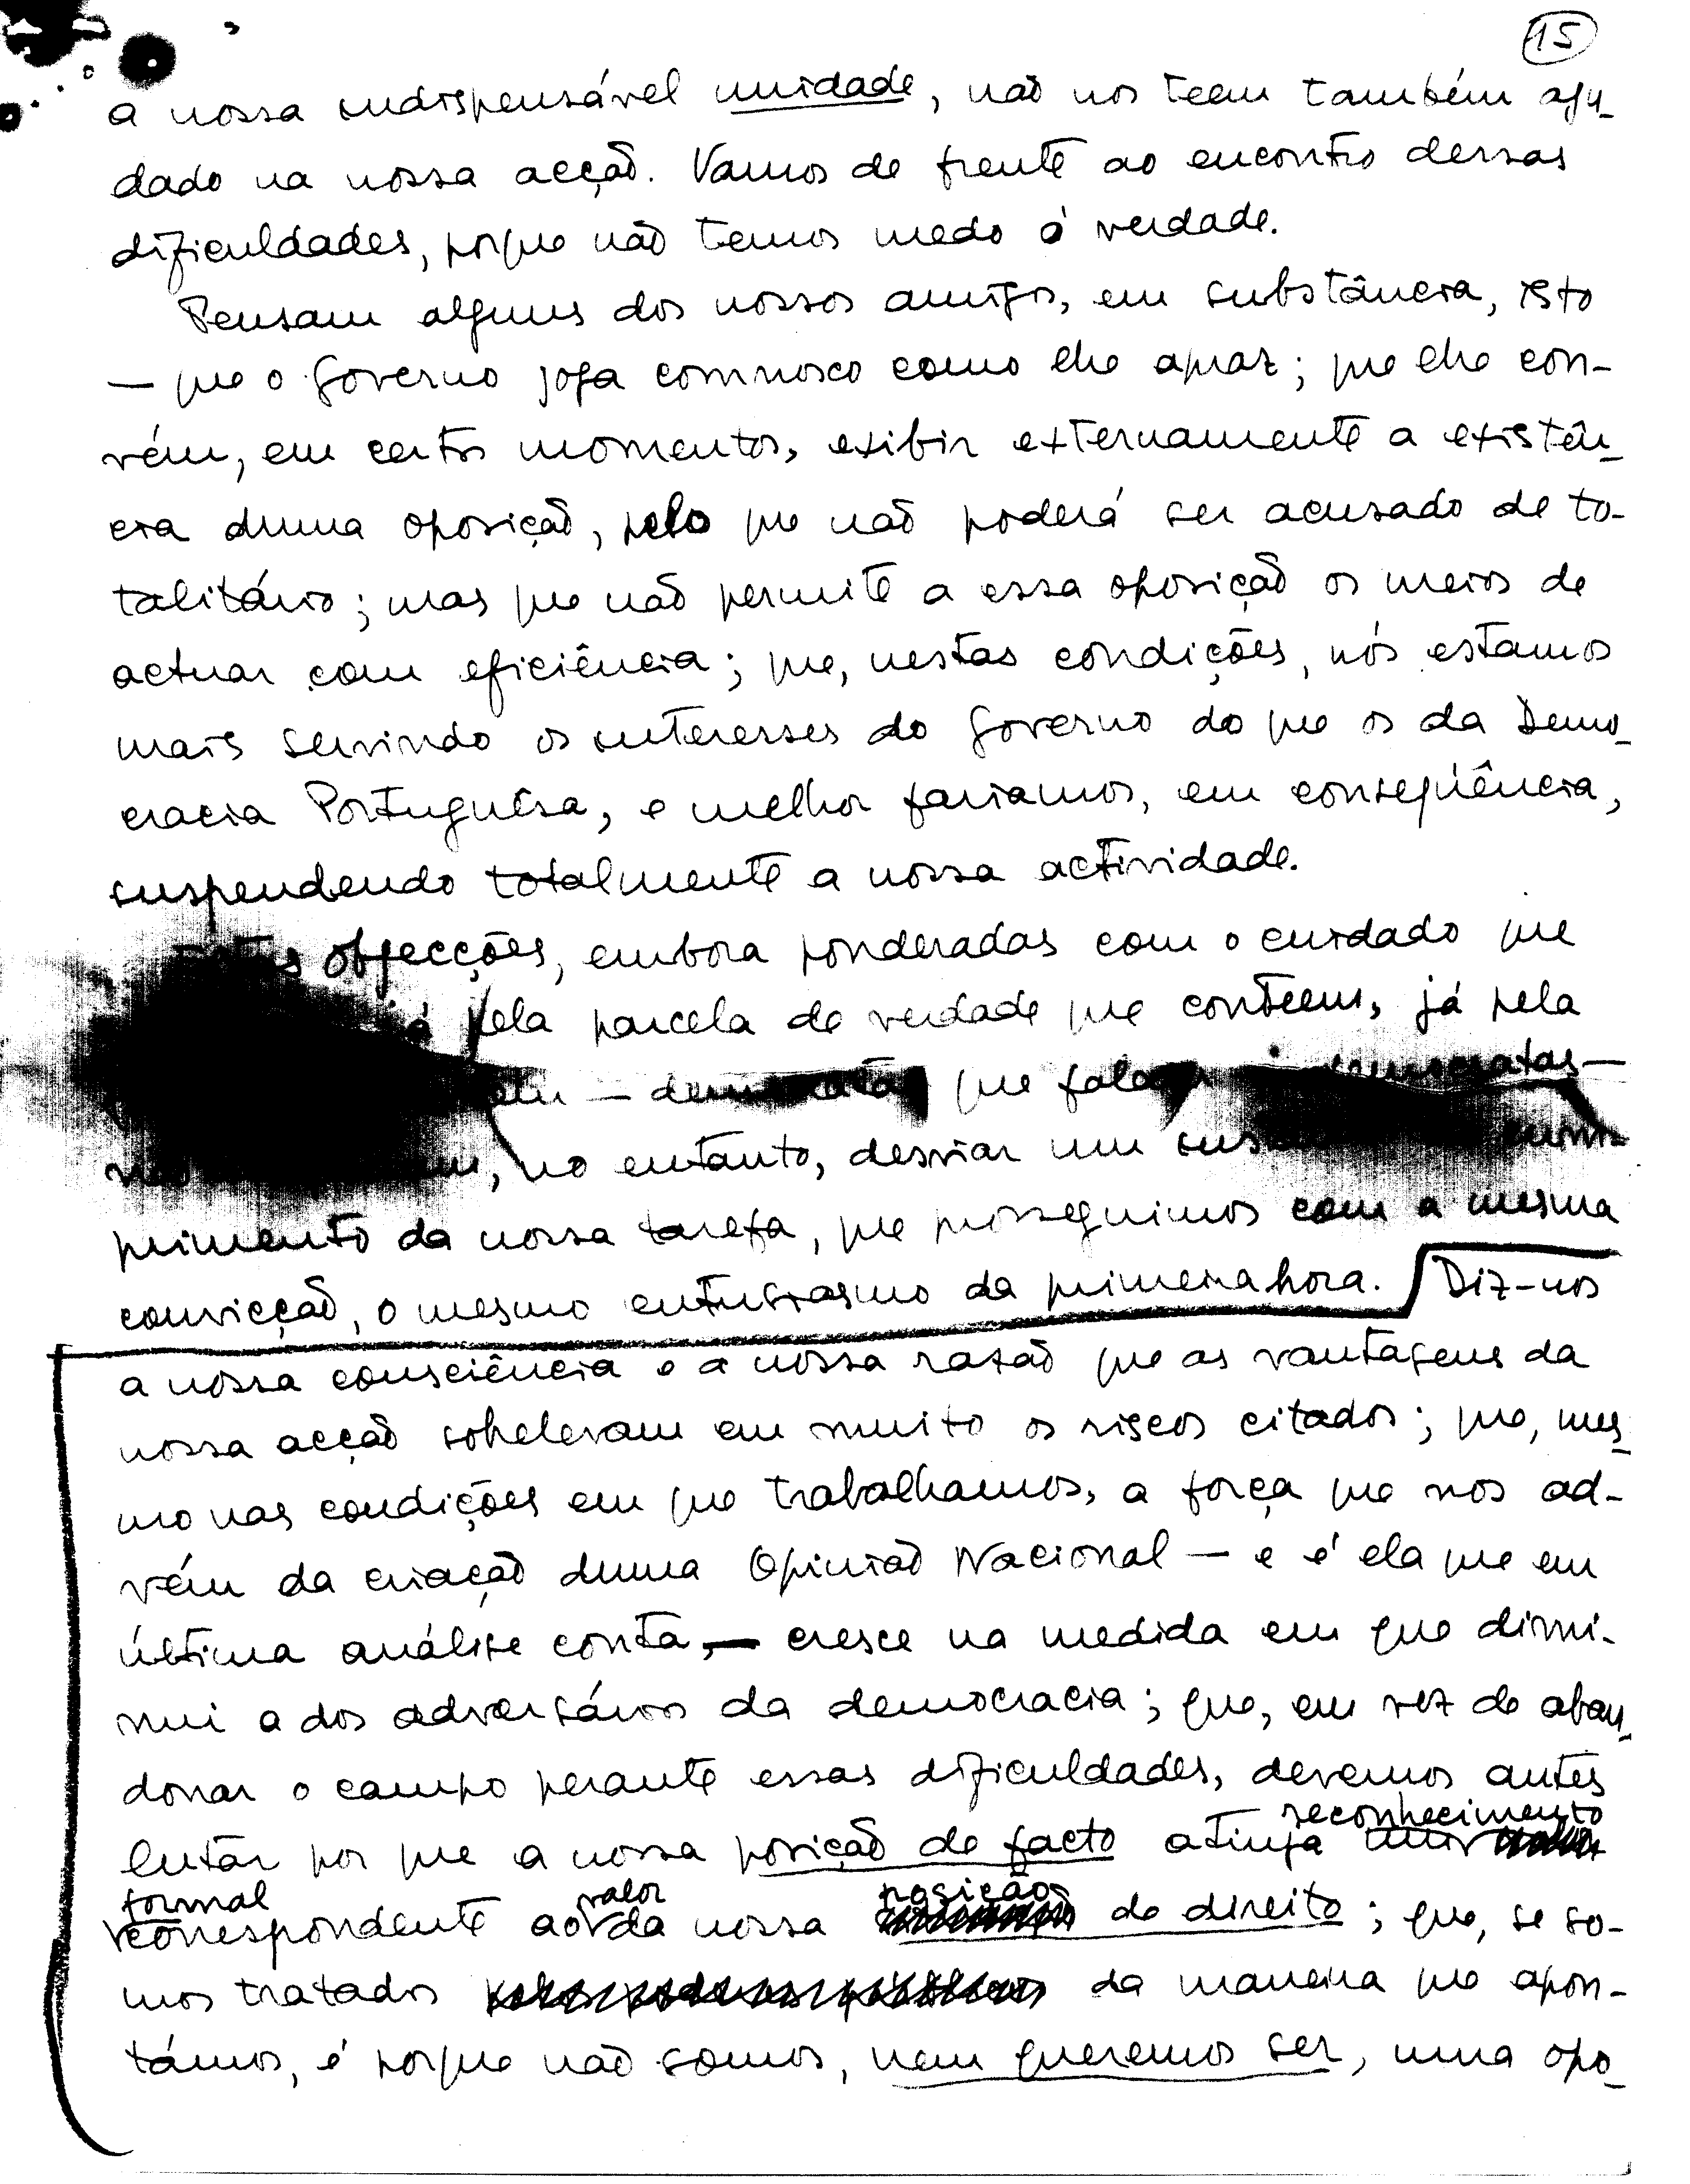 15
a nossa indispensável unidade, não nos teem também aju-
dado na nossa acção. Vamos de frente ao encontro dessas
dificuldades, porque não temos medo à verdade.
Pensam alguns dos nossos amigos, em substância, isto
— que o Governo joga comnosco como lhe apraz; que lhe con-
vém, em certos momentos, exibir externamente a existên-
cia duma oposição, pelo que não poderá ser acusado de to-
talitário; mas que não permite a essa oposição os meios de
actuar com eficiência; que, nestas condições, nós estamos
mais servindo os interesses do Governo do que os da Demo-
cracia Portuguêsa, e melhor fariamos, em conseqüência,
suspendendo totalmente a nossa actividade.
Estas objecções, embora ponderadas com o cuidado que
já pela parcela de verdade que conteem, já pela
— democratas que falam democratas —
no entanto, desviar um
primento da nossa tarefa, que prosseguimos com a mesma
convicção, o mesmo entusiasmo da primeira hora. Diz-nos
a nossa consciência e a nossa razão que as vantagens da
nossa acção sobelevam em muito os riscos citados; que, mes-
mo nas condições em que trabalhamos, a força que nos ad-
vém da criação duma Opinião Nacional — e é ela que em
última análise conta, — cresce na medida em que dimi-
nui a dos adversários da democracia; que, em vez de aban-
donar o campo perante essas dificuldades, devemos antes
lutar por que a nossa posição de facto atinja reconhecimento
formal correspondente ao valor da nossa posição de direito; que, se so-
mos tratados da maneira que apon-
támos, é porque não somos, nem queremos ser, uma opo-